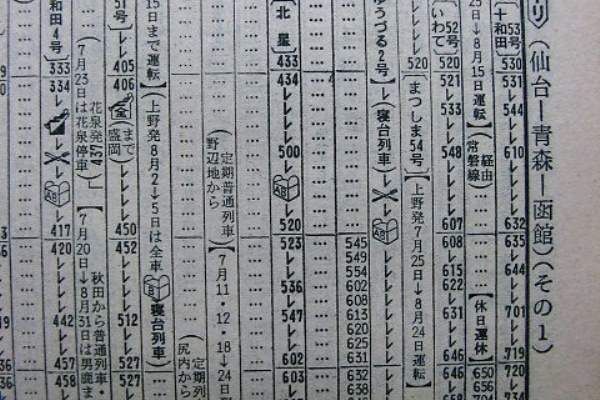 り (仙台—青森—函館) (その1)
十和田 53号 530 531 544 610 632 635 644 701 719 720 734
25日→8月15日運転】 (常磐線 経由) 【休日運休】 650 656
いわて 52号 520 521 533 548 607 608 615 622 631 646 646
520 【まつしま54号】 【上野発7月25日→8月24日運転】
ゆうづる2号】 (寝台列車)
545 549 554 602 608 613 620 625 631 632 638
北星 433 434 500 520 523 536 547 602 603
野辺地から 定期普通列車 【7月11・12・18→24日
(尻内から 定期列
15日まで運転】 (上野発8月2→5日は全車 寝台列車)
51号 405 406 (盛岡 まで) 450 452 512 527 527
7月23日は花泉停車 花泉発437 【7月20日→8月31日は男鹿ま 秋田から普通列車・
和田4号 333 334 417 420 442 457 458